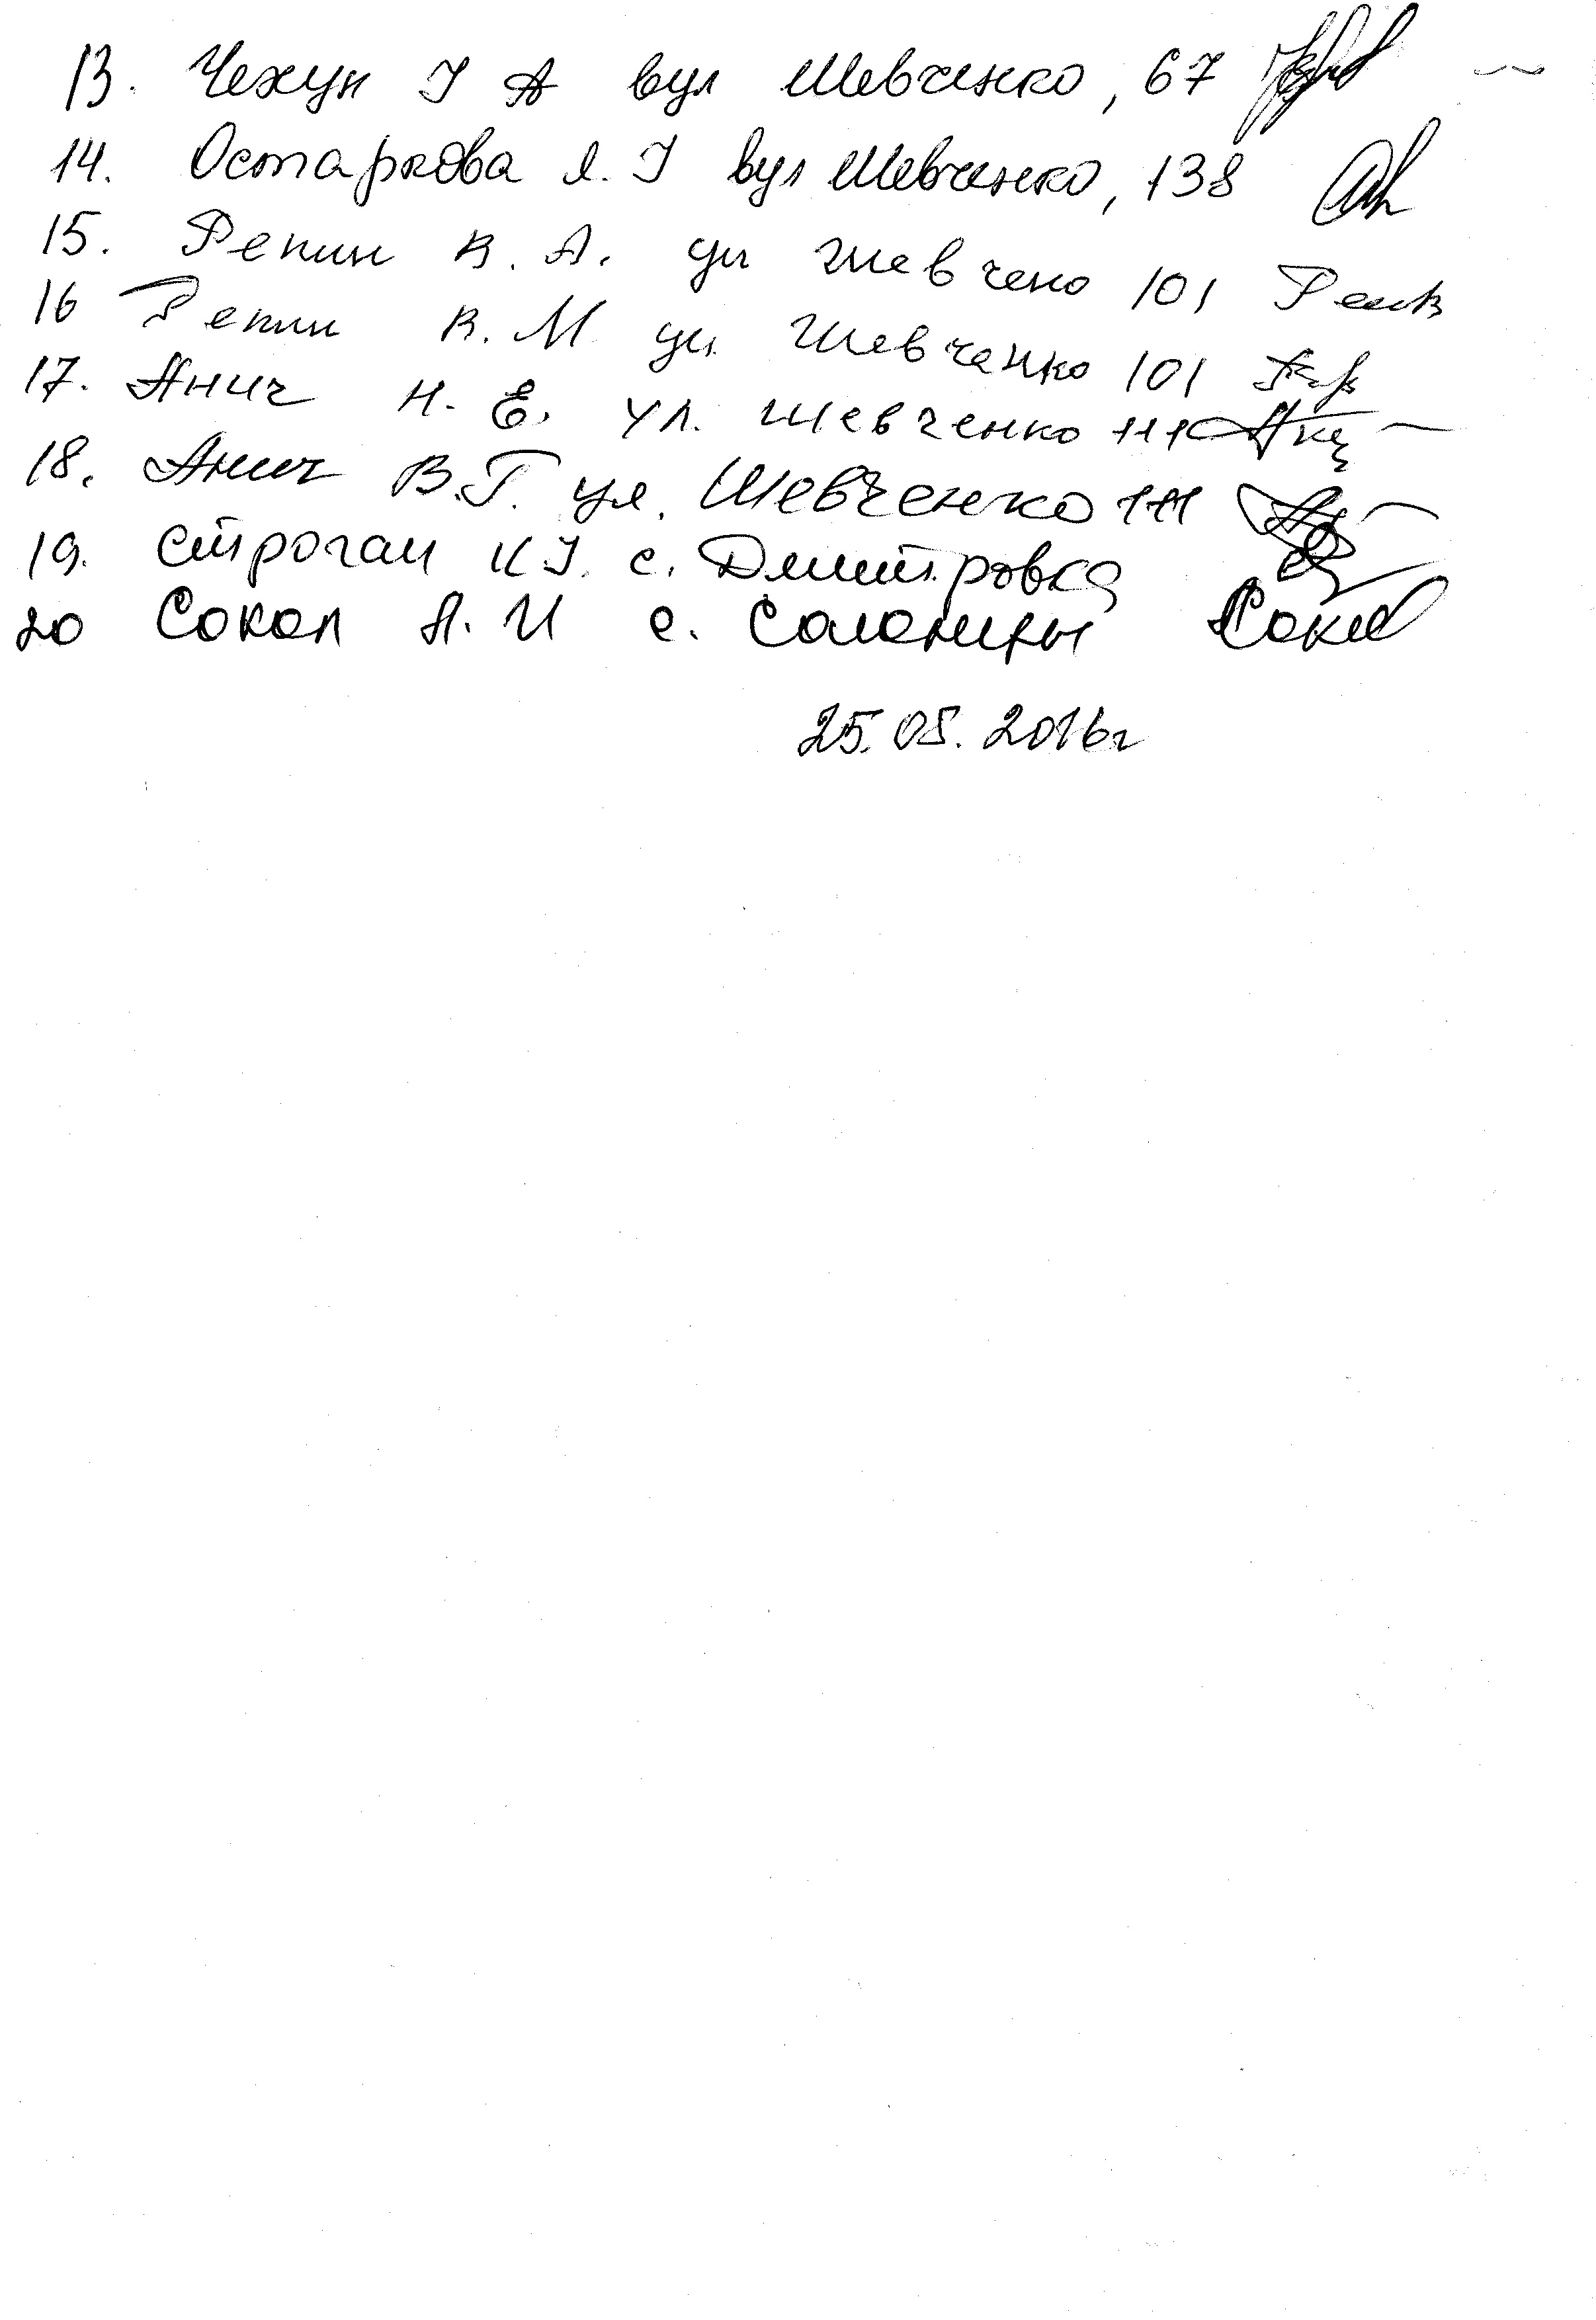 13. Чехун І А вул Шевченко, 67
14. Остаркова Л. І вул Шевченко, 138
15. Репин В. А. ул Шевчено 101 Репв
16 Репин В. М ул. Шевченко 101
17. Янич Н. Е. ул. Шевченко 111
18. Янич В.Г. ул. Шевченко 111
19. Строган К І. с. Дмитровка
20 Сокол Я. И с. Солоницы Сокол
25.05.2016г